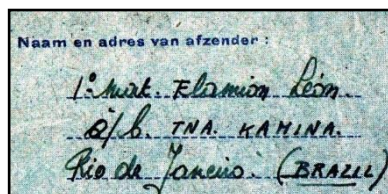 Naam en adres van afzender :
1º mat. Flamion Léon.
a/b. TNA. KAMINA.
Rio de Janeiro. (BRAZIL)